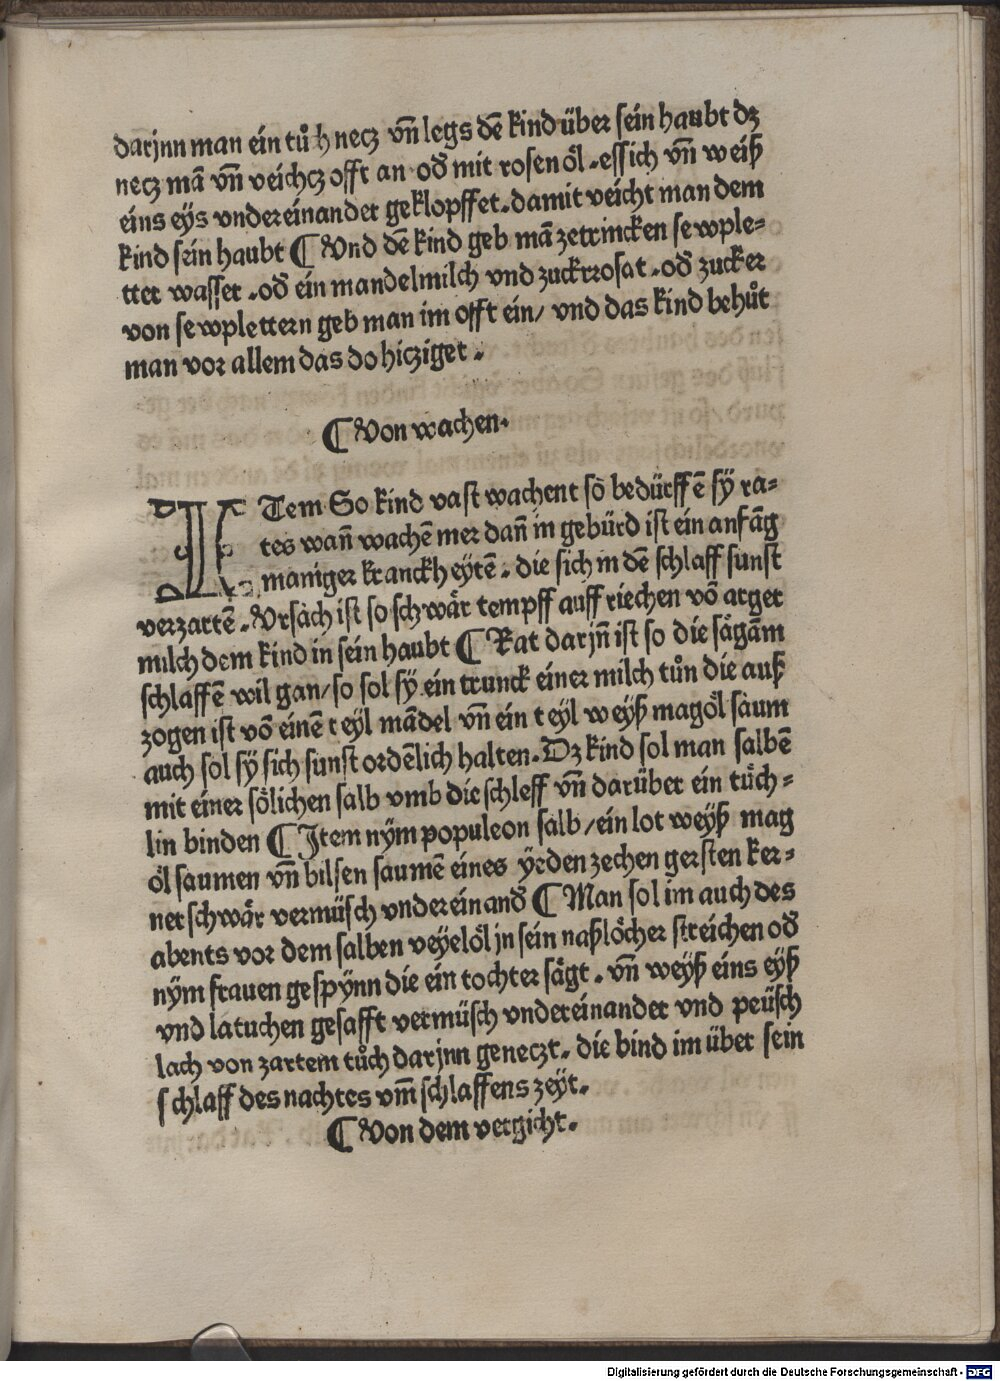 darjnn man ein tuͦch necz vn̄ legs dē kind über sein haubt dz
necz mā vn̄ veichcz offt an od̄ mit rosen oͤl. essich vn̄ weiß
eins eÿs vndereinander geklopffet. damit veicht man dem
kind sein haubt ¶ Vnd dē kind geb mā zetrincken sewple⸗
tter wasser. od̄ ein mandelmilch vnd zuckrrosat. od̄ zucker
von sewplettern geb man im offt ein/ vnd das kind behuͤt
man vor allem das do hicziget.
¶ Von wachen.
ITem So kind vast wachent so bedürffē sÿ ra⸗
tes wan̄ wachē mer dan̄ in gebürd ist ein anfāg
maniger kranckheytē. die sich in dē schlaff sunst
verzartē. Vrsach ist so schwaͤr tempff auff riechen vō arger
milch dem kind in sein haubt ¶ Rat darjn̄ ist so die saͤgām
schlaffē wil gan/ so sol sÿ ein trunck einer milch tuͦn die auß
zogen ist vō einē teyl mādel vn̄ ein teyl weyß magoͤl saum
auch sol sÿ sich sunst ordēlich halten. Dz kind sol man salbē
mit einer soͤlichen salb vmb die schleff vn̄ darüber ein tuͤch⸗
lin binden ¶ Item nÿm populeon salb/ ein lot weyß mag
oͤl saumen vn̄ bilsen saumē eines yeden zechen gersten ker⸗
ner schwaͤr vermüsch vndereinand̄ ¶ Man sol im auch des
abents vor dem salben veyeloͤl jn sein naßloͤcher streichen od̄
nÿm frauen gespÿnn die ein tochter saͤgt. vn̄ weyß eins eÿß
vnd latuchen gesafft vermüsch vndereinander vnd peüsch
lach von zartem tuͦch darjnn geneczt. die bind im über sein
schlaff des nachtes vm̄ schlaffens zeyt.
¶ Von dem vergicht.
Digitalisierung gefördert durch die Deutsche Forschungsgemeinschaft - DFG